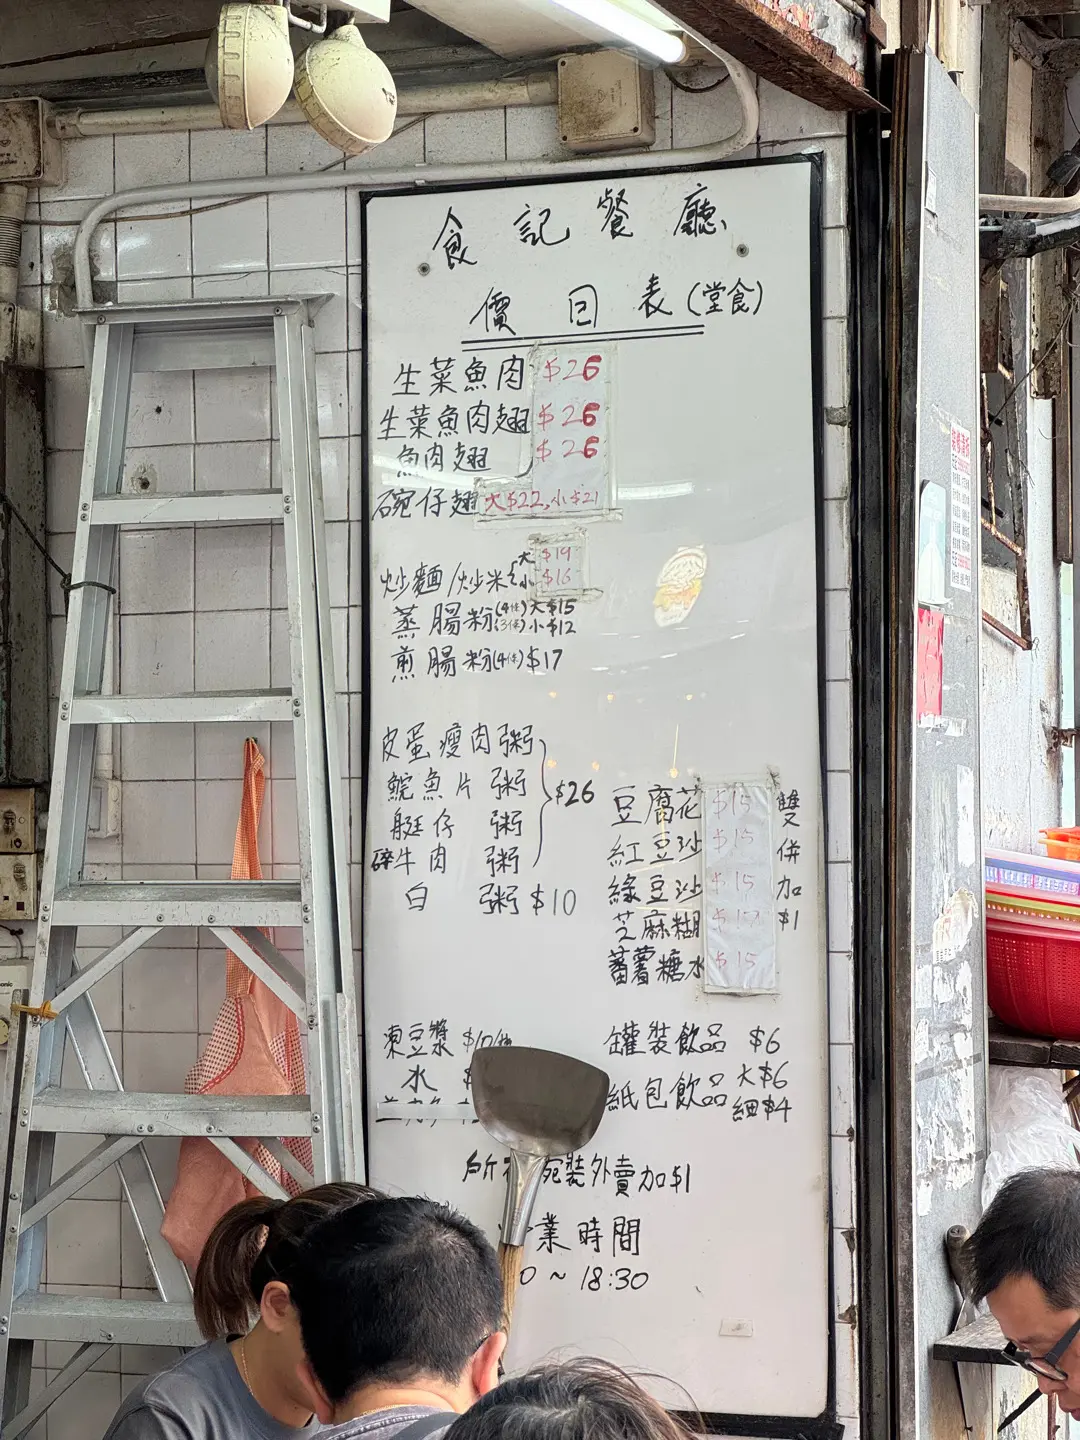 食記餐廳
價目表(堂食)
生菜魚肉 $26
生菜魚肉翅 $26
魚肉翅 $26
碗仔翅 大$22, 小$21
炒麵/炒米 大 $19
小 $16
蒸腸粉 (4条) 大$15
(3条) 小$12
煎腸粉 (4条) $17
皮蛋瘦肉粥
鯇魚片粥
艇仔粥
碎牛肉粥
$26
白粥 $10
豆腐花 $15
紅豆沙 $15
綠豆沙 $15
芝麻糊
蕃薯糖水 $15
雙併加$1
凍豆漿 $10
水
罐裝飲品 $6
紙包飲品 大$6
細$4
所 碗裝外賣加$1
業時間
0 ~ 18:30